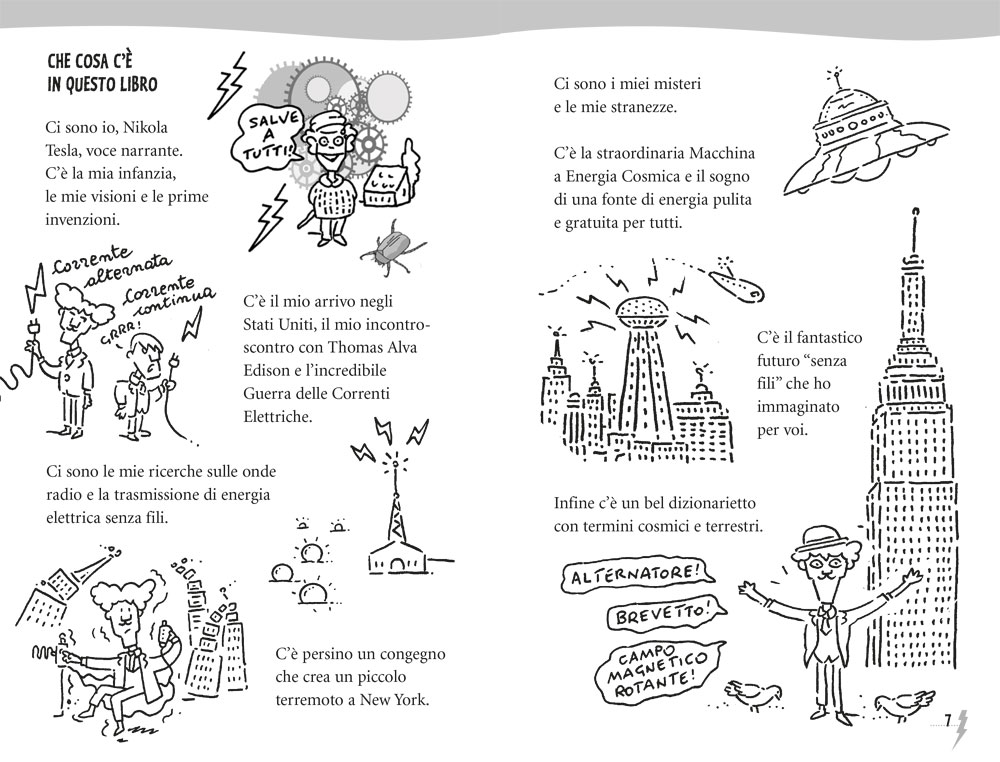 CHE COSA C'È
IN QUESTO LIBRO
Ci sono io, Nikola
Tesla, voce narrante.
C'è la mia infanzia,
le mie visioni e le prime
invenzioni.
SALVE
A
TUTTI!
Corrente
alternata
Corrente
continua
GRRR!
C'è il mio arrivo negli
Stati Uniti, il mio incontro-
scontro con Thomas Alva
Edison e l'incredibile
Guerra delle Correnti
Elettriche.
Ci sono le mie ricerche sulle onde
radio e la trasmissione di energia
elettrica senza fili.
C'è persino un congegno
che crea un piccolo
terremoto a New York.
Ci sono i miei misteri
e le mie stranezze.
C'è la straordinaria Macchina
a Energia Cosmica e il sogno
di una fonte di energia pulita
e gratuita per tutti.
C'è il fantastico
futuro “senza
fili” che ho
immaginato
per voi.
Infine c'è un bel dizionarietto
con termini cosmici e terrestri.
ALTERNATORE!
BREVETTO!
CAMPO
MAGNETICO
ROTANTE!
7